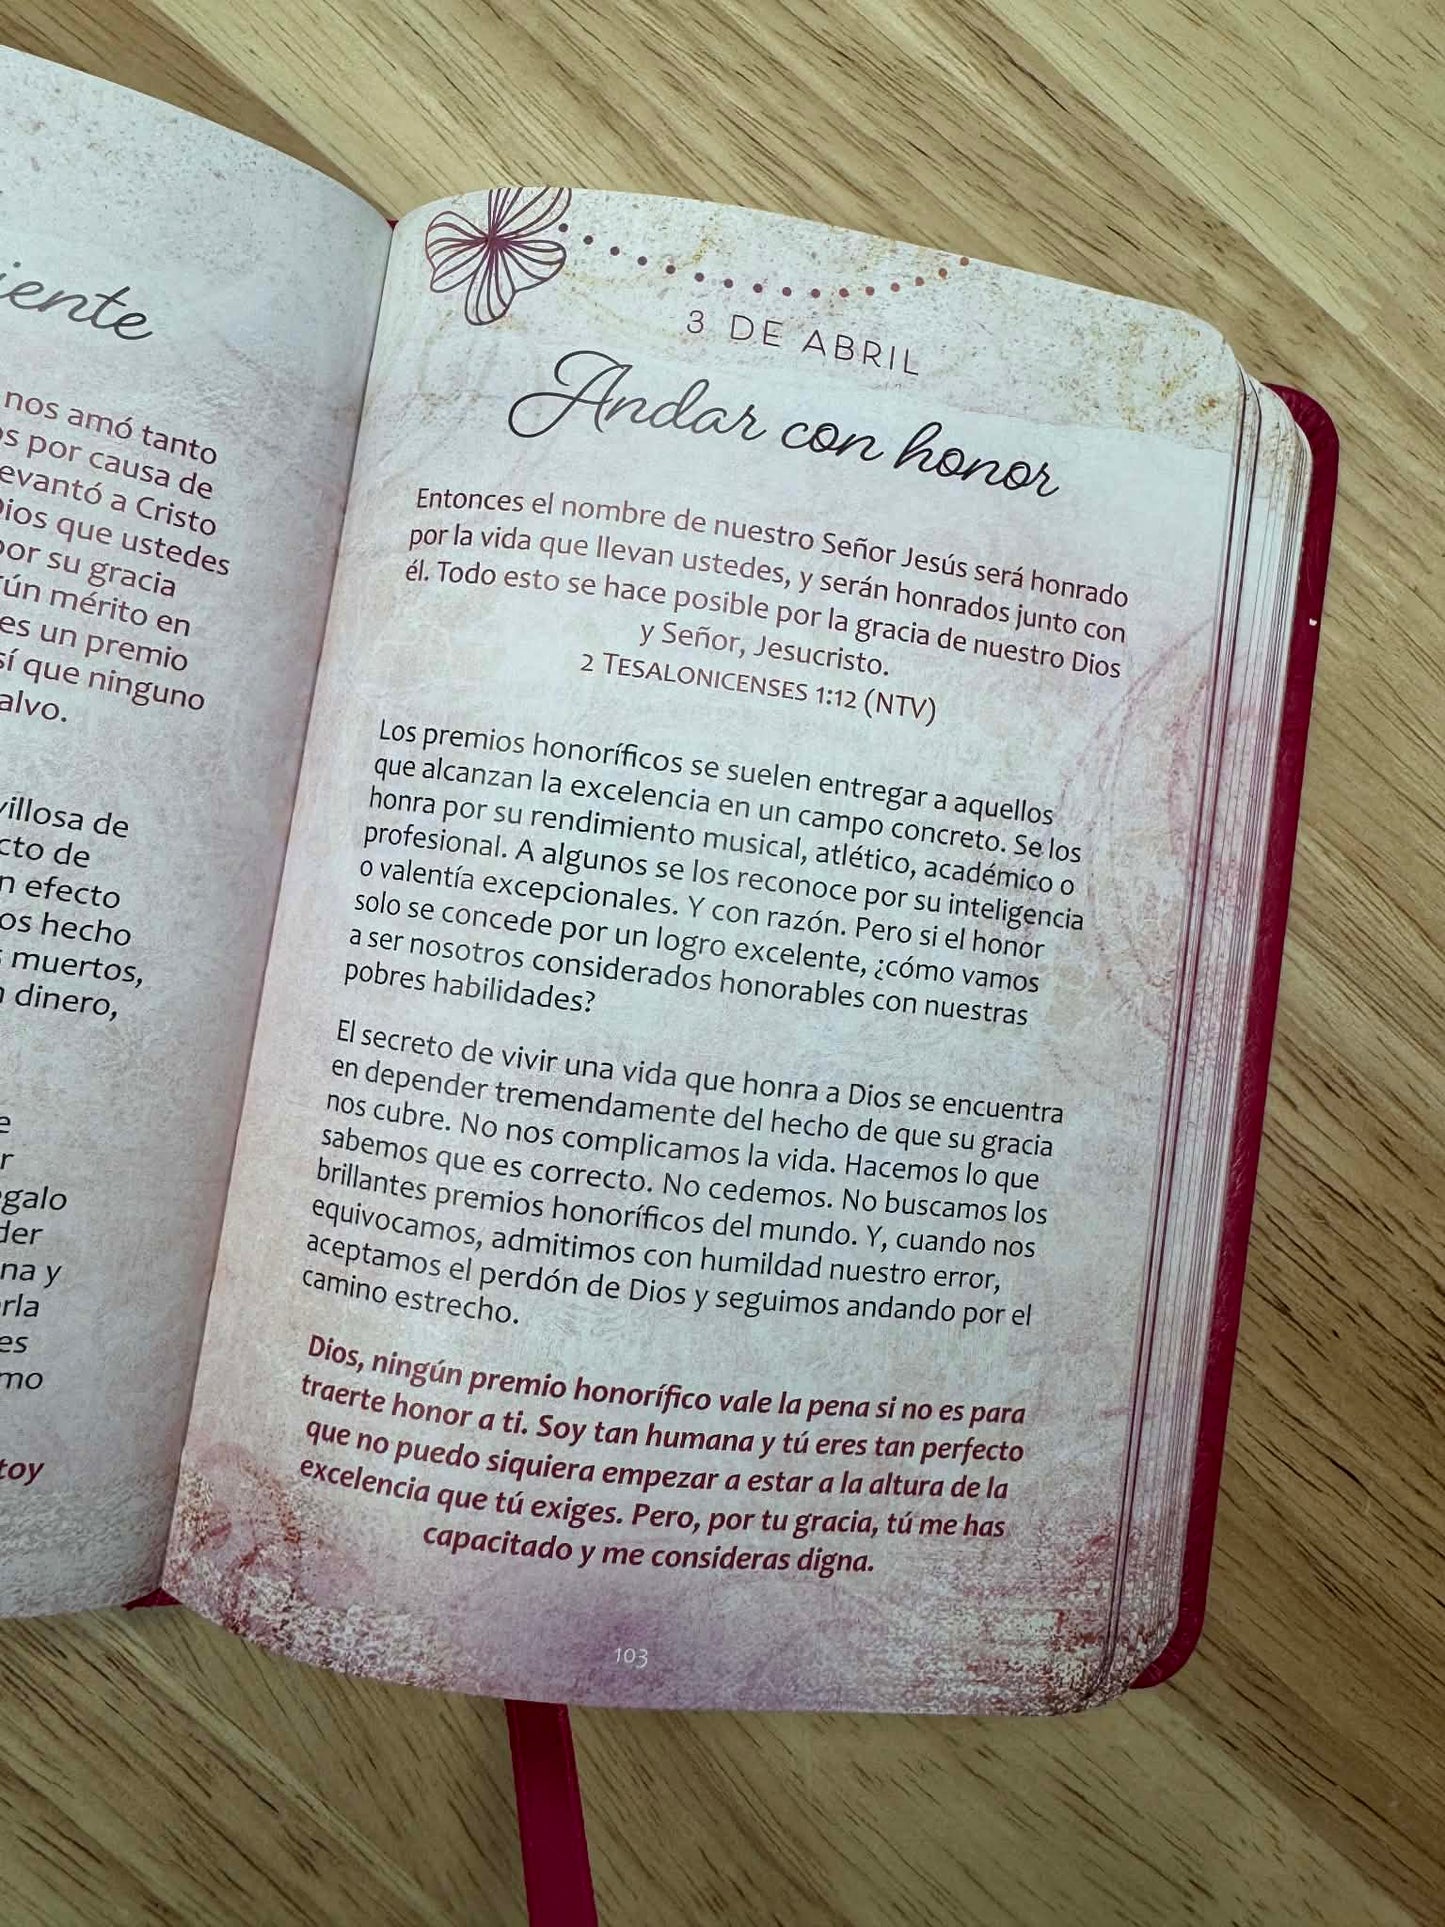 iente
nos amó tanto
os por causa de
evantó a Cristo
Dios que ustedes
por su gracia
ún mérito en
es un premio
sí que ninguno
alvo.
villosa de
cto de
n efecto
os hecho
s muertos,
n dinero,
e
r
egalo
der
na y
rla
es
mo
toy
3 DE ABRIL
Andar con honor
Entonces el nombre de nuestro Señor Jesús será honrado
por la vida que llevan ustedes, y serán honrados junto con
él. Todo esto se hace posible por la gracia de nuestro Dios
y Señor, Jesucristo.
2 TESALONICENSES 1:12 (NTV)
Los premios honoríficos se suelen entregar a aquellos
que alcanzan la excelencia en un campo concreto. Se los
honra por su rendimiento musical, atlético, académico o
profesional. A algunos se los reconoce por su inteligencia
o valentía excepcionales. Y con razón. Pero si el honor
solo se concede por un logro excelente, ¿cómo vamos
a ser nosotros considerados honorables con nuestras
pobres habilidades?
El secreto de vivir una vida que honra a Dios se encuentra
en depender tremendamente del hecho de que su gracia
nos cubre. No nos complicamos la vida. Hacemos lo que
sabemos que es correcto. No cedemos. No buscamos los
brillantes premios honoríficos del mundo. Y, cuando nos
equivocamos, admitimos con humildad nuestro error,
aceptamos el perdón de Dios y seguimos andando por el
camino estrecho.
Dios, ningún premio honorífico vale la pena si no es para
traerte honor a ti. Soy tan humana y tú eres tan perfecto
que no puedo siquiera empezar a estar a la altura de la
excelencia que tú exiges. Pero, por tu gracia, tú me has
capacitado y me consideras digna.
103